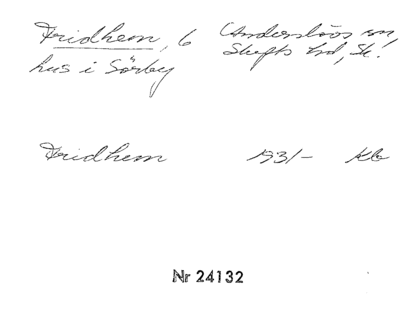 Fridhem, 6 Anderslövs sn,
hus i Sörby Skytts hd, Sk.
Fridhem 1931- Kb
Nr 24132